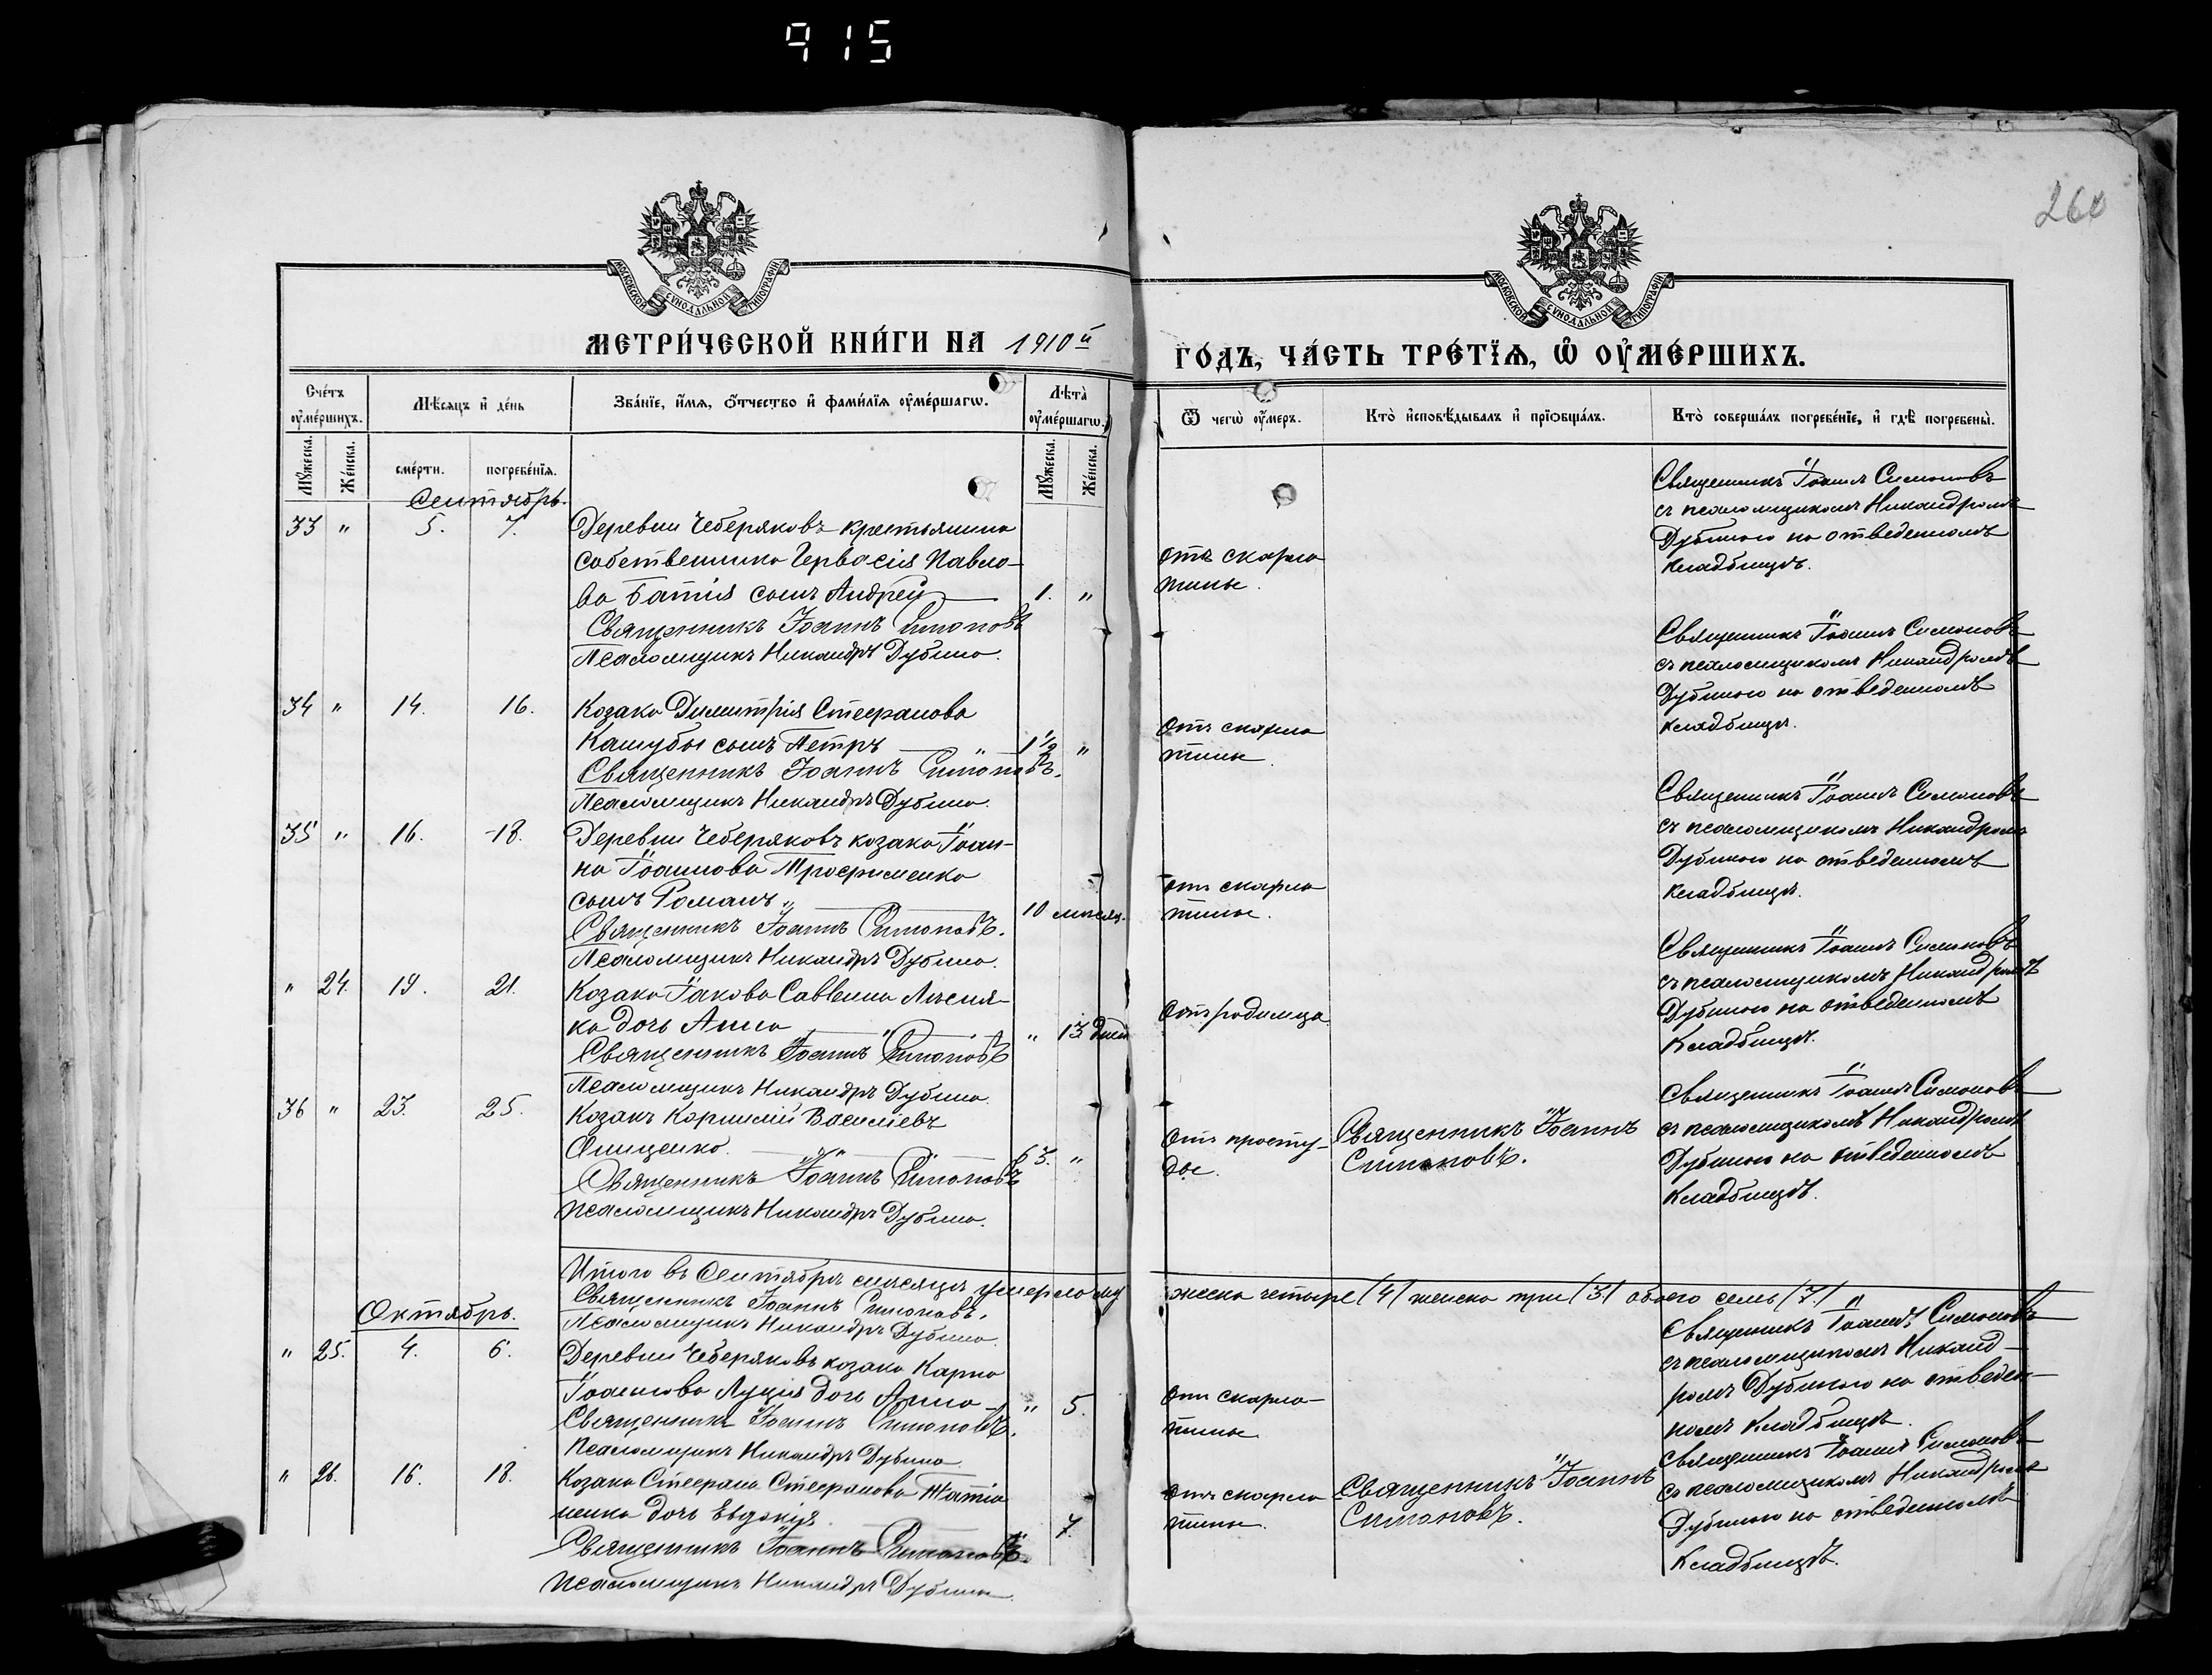 915
260
МОСКОВСКОЙ СУНОДАЛЬНОЙ ТИПОГРАФІИ
МОСКОВСКОЙ СУНОДАЛЬНОЙ ТИПОГРАФІИ
МЕТРИ́ЧЕСКОЙ КНИ́ГИ НА 1910й
ГО́ДЪ, ЧА́СТЬ ТРЕ́ТІѦ, Ѿ ОУ҆МЕ́РШИХЪ.
Сче́тъ оу҆ме́ршихъ.
Мꙋ́жеска. Же́нска.
Мѣ́сяцъ и҆ де́нь
сме́рти. погребе́нїѧ.
Зва́нїе, и҆́мѧ, ѻ҆́тчество и҆ фами́лїѧ оу҆ме́ршагѡ.
Лѣта̀ оу҆ме́ршагѡ.
Мꙋ́жеска. Же́нска.
Ѿ чегѡ̀ оу҆́меръ.
Кто̀ и҆сповѣ́дывалъ и҆ прїѡбща́лъ.
Кто̀ соверша́лъ погребе́нїе, и҆ гдѣ̀ погребены̀.
Сентябрь.
33 " 5. 7.
Деревни Чеберяковъ крестьянина
собственника Гервасія Павло-
ва Батія сынъ Андрей 1. "
Священникъ Іоаннъ Симоновъ
Псаломщикъ Никандръ Дубина.
отъ скарла
тины.
Священникъ Іоаннъ Симоновъ
съ псаломщикомъ Никандромъ
Дубиною на отведенномъ
кладбищѣ.
34 " 14. 16.
Козака Димитрія Стефанова
Кашубы сынъ Петръ 1½ "
Священникъ Іоаннъ Симоновъ.
Псаломщикъ Никандръ Дубина.
Отъ скарла
тины.
Священникъ Іоаннъ Симоновъ
съ псаломщикомъ Никандромъ
Дубиною на отведенномъ
кладбищѣ.
35 " 16. 18.
Деревни Чеберяковъ козака Іоан-
на Іоаннова Трофименка
сынъ Романъ 10 мѣсяц.
Священникъ Іоаннъ Симоновъ.
Псаломщикъ Никандръ Дубина.
отъ скарла
тины.
Священникъ Іоаннъ Симоновъ
съ псаломщикомъ Никандромъ
Дубиною на отведенномъ
кладбищѣ.
" 24. 19. 21.
Козака Іакова Саввина
ка дочь Анна " 13 дней
Священникъ Іоаннъ Симоновъ
Псаломщикъ Никандръ Дубина.
Отъ родимца
Священникъ Іоаннъ Симоновъ
съ псаломщикомъ Никандромъ
Дубиною на отведенномъ
Кладбищѣ.
36 " 23. 25.
Козакъ Корнилій Васильевъ
Онищенко. 63. "
Священникъ Іоаннъ Симоновъ
Псаломщикъ Никандръ Дубина.
Отъ просту-
ды.
Священникъ Іоаннъ
Симоновъ.
Священникъ Іоаннъ Симоновъ
съ псаломщикомъ Никандромъ
Дубиною на отведенномъ
Кладбищѣ.
Итого въ Сентябрѣ мѣсяцѣ умерло му
жеска четыре /4/ женска три /3/ обоего семь /7./
Священникъ Іоаннъ Симоновъ.
Псаломщикъ Никандръ Дубина.
Октябрь.
" 25. 4. 6.
Деревни Чеберяковъ козака Карпа
Іоаннова Луція дочь Анна " 5.
Священникъ Іоаннъ Симоновъ.
Псаломщикъ Никандръ Дубина.
Отъ скарла-
тины
Священникъ Іоаннъ Симоновъ
съ псаломщикомъ Никанд-
ромъ Дубиною на отведен-
номъ Кладбищѣ.
" 26. 16. 18.
Козака Стефана Стефанова
ненка дочь Евдокія 7.
Священникъ Іоаннъ Симоновъ.
Псаломщикъ Никандръ Дубина
Отъ скарла
тины.
Священникъ Іоаннъ
Симоновъ.
Священникъ Іоаннъ Симоновъ
съ псаломщикомъ Никандромъ
Дубиною на отведенномъ
Кладбищѣ.